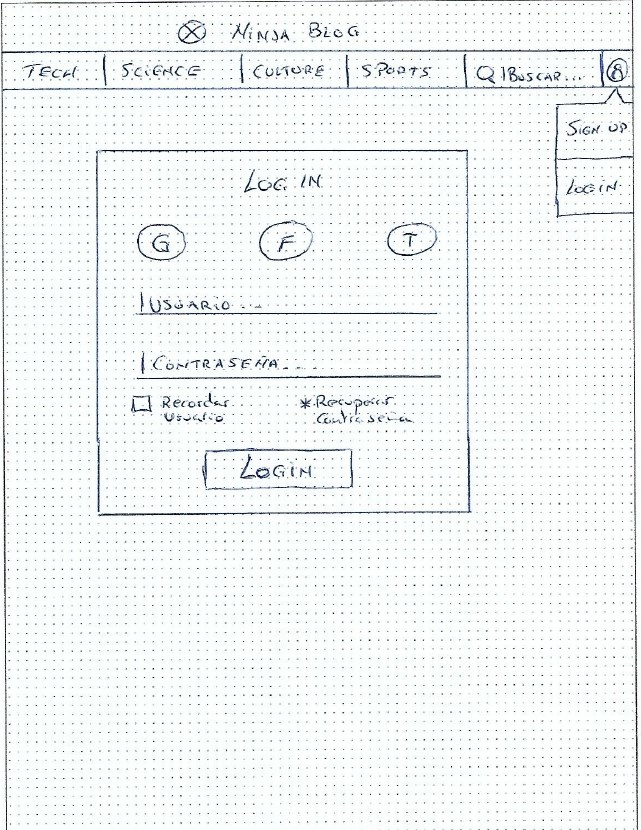 Ninja Blog
Tech | Science | Culture | Sports | Buscar...
Sign up
Login
Log in
G F T
Usuario...
Contraseña...
Recordar * Recuperar
Usuario Contraseña
Login